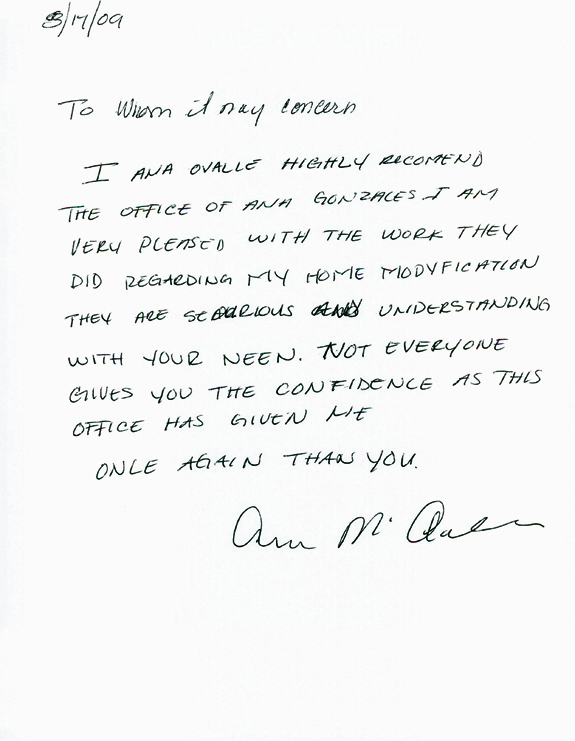 8/17/09
To Whom it may concern
I ANA OVALLE HIGHLY RECOMEND
THE OFFICE OF ANA GONZALES I AM
VERY PLEASED WITH THE WORK THEY
DID REGARDING MY HOME MODYFICATION
THEY ARE UNDERSTANDING
WITH YOUR NEEN. NOT EVERYONE
GIVES YOU THE CONFIDENCE AS THIS
OFFICE HAS GIVEN ME
ONLE AGAIN THAN YOU.
Ana M.